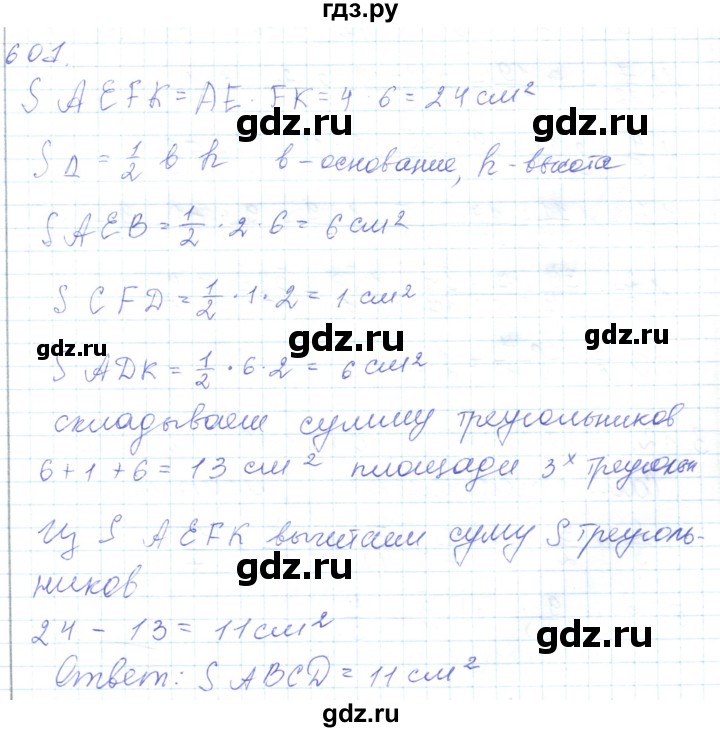 гдз.ру
601.
S AEFK = AE · FK = 4 · 6 = 24 см²
gdz.ru
S Δ = 1/2 b h b - основание, h - высота
S AEB = 1/2 · 2 · 6 = 6 см²
gdz.ru
S CFD = 1/2 · 1 · 2 = 1 см²
gdz.ru gdz.ru
S ADK = 1/2 · 6 · 2 = 6 см²
складываем сумму треугольников
6 + 1 + 6 = 13 см² площади 3х треугольн
gdz.ru
Из S AEFK вычитаем суму S треуголь-
ников
gdz.ru
24 - 13 = 11 см²
gdz.ru
Ответ: S ABCD = 11 см²
gdz.ru